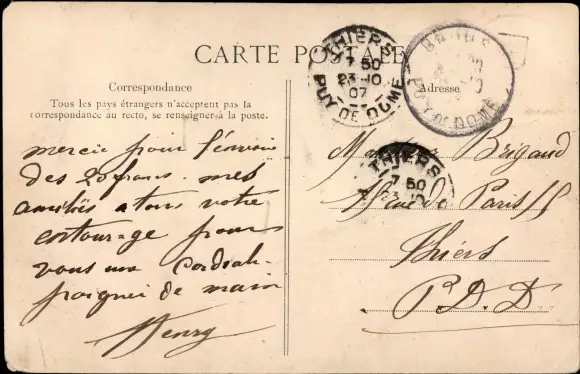 CARTE POSTALE
Correspondance
Tous les pays étrangers n'acceptent pas la
correspondance au recto, se renseigner à la poste.
mercie pour l'envoie
des 20 francs. mes
amitiés a tous votre
entourage pour
vous une Cordiale
poignée de main
Henry
THIERS
7 50
23 10
07
PUY DE DOME
PUY DE DOME
Adresse
THIERS
7 50
Monsieur Brigaud
Rue de Paris 15
Thiers
P. D. D.